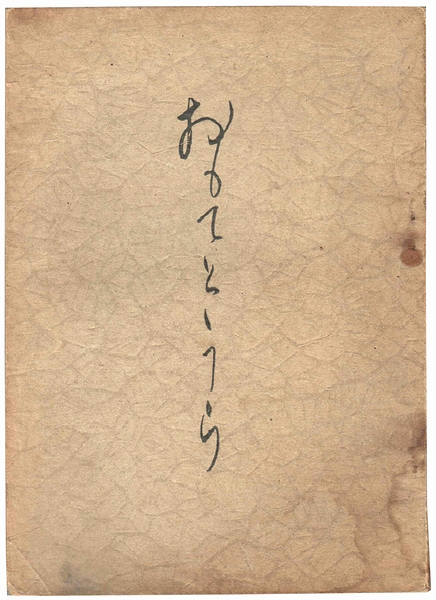 おもてとうら